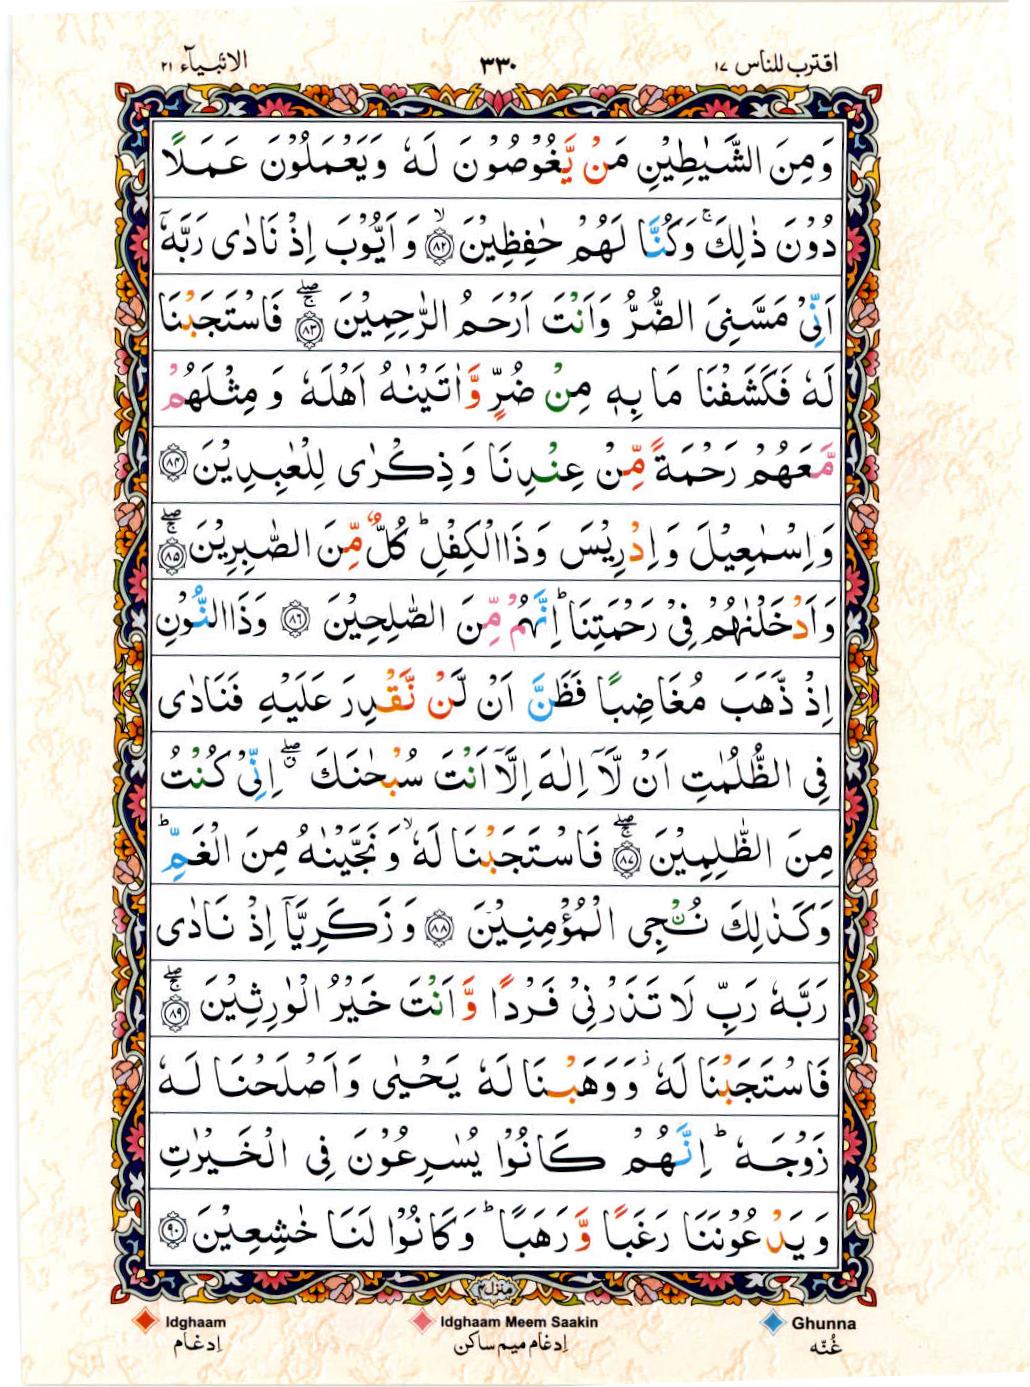 اقترب للناس ١٧
٣٣٠
الانبيآء ٢١
وَمِنَ الشَّيٰطِيْنِ مَنْ يَّغُوْصُوْنَ لَهٗ وَيَعْمَلُوْنَ عَمَلًا
دُوْنَ ذٰلِكَ ۚ وَكُنَّا لَهُمْ حٰفِظِيْنَ ۙ ﴿۸۲﴾ وَاَيُّوْبَ اِذْ نَادٰى رَبَّهٗٓ
اَنِّىْ مَسَّنِىَ الضُّرُّ وَاَنْتَ اَرْحَمُ الرّٰحِمِيْنَ ۖۚ ﴿۸۳﴾ فَاسْتَجَبْنَا
لَهٗ فَكَشَفْنَا مَا بِهٖ مِنْ ضُرٍّ وَّاٰتَيْنٰهُ اَهْلَهٗ وَمِثْلَهُمْ
مَّعَهُمْ رَحْمَةً مِّنْ عِنْدِنَا وَذِكْرٰى لِلْعٰبِدِيْنَ ﴿۸۴﴾
وَاِسْمٰعِيْلَ وَاِدْرِيْسَ وَذَا الْكِفْلِ ؕ كُلٌّ مِّنَ الصّٰبِرِيْنَ ۖۚ ﴿۸۵﴾
وَاَدْخَلْنٰهُمْ فِىْ رَحْمَتِنَا ؕ اِنَّهُمْ مِّنَ الصّٰلِحِيْنَ ﴿۸۶﴾ وَذَا النُّوْنِ
اِذْ ذَّهَبَ مُغَاضِبًا فَظَنَّ اَنْ لَّنْ نَّقْدِرَ عَلَيْهِ فَنَادٰى
فِى الظُّلُمٰتِ اَنْ لَّاۤ اِلٰهَ اِلَّاۤ اَنْتَ سُبْحٰنَكَ ۖ اِنِّىْ كُنْتُ
مِنَ الظّٰلِمِيْنَ ۖۚ ﴿۸۷﴾ فَاسْتَجَبْنَا لَهٗ ۙ وَنَجَّيْنٰهُ مِنَ الْغَمِّ ؕ
وَكَذٰلِكَ نُـنْجِى الْمُؤْمِنِيْنَ ﴿۸۸﴾ وَزَكَرِيَّاۤ اِذْ نَادٰى
رَبَّهٗ رَبِّ لَا تَذَرْنِىْ فَرْدًا وَّاَنْتَ خَيْرُ الْوٰرِثِيْنَ ۖۚ ﴿۸۹﴾
فَاسْتَجَبْنَا لَهٗ ۫ وَوَهَبْنَا لَهٗ يَحْيٰى وَاَصْلَحْنَا لَهٗ
زَوْجَهٗ ؕ اِنَّهُمْ كَانُوْا يُسٰرِعُوْنَ فِى الْخَيْرٰتِ
وَيَدْعُوْنَنَا رَغَبًا وَّرَهَبًا ؕ وَكَانُوْا لَنَا خٰشِعِيْنَ ﴿۹۰﴾
منزل ۴
Idghaam Idghaam Meem Saakin Ghunna
غُنّه اِدغام ميم ساكن اِدغام